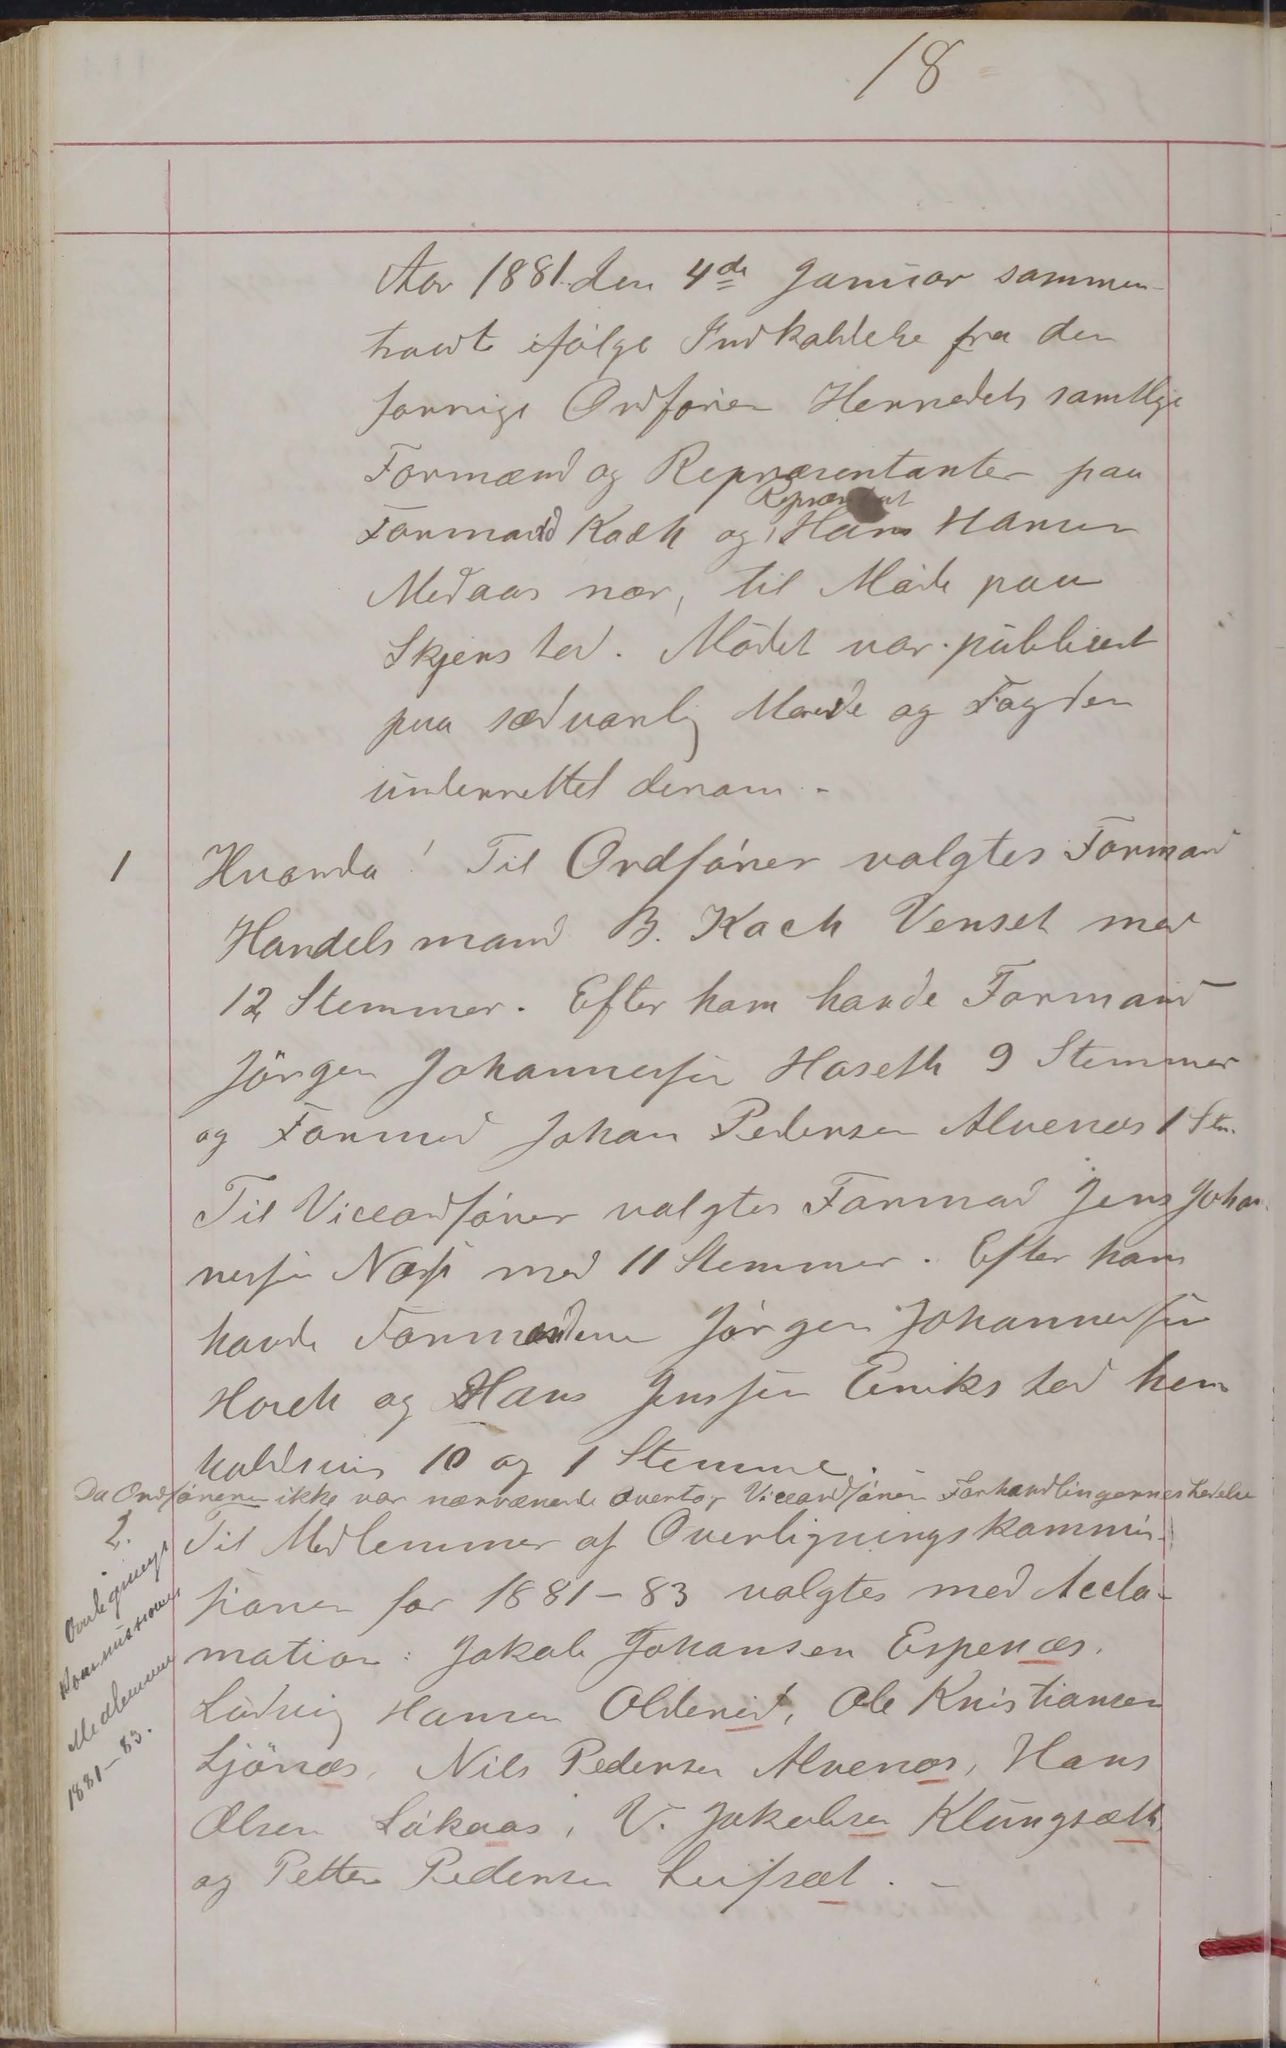 18
Aar 1881 den 4de Januar sammen-
traadt ifølge Indkaldelse fra den
forrige Ordfører Herredets samtlige
Formænd og Repræsentanter paa
Repræsentant
Formand Koch og Hans Hansen
Medaas nær, til Møde paa
Skjerstad. Mödet var publiceret
paa sædvanlig Maade og Fogden
underrettet derom -
1 Hvorda! Til Ordförer valgtes Formand
Handelsmand B. Koch Venset med
12 Stemmer. Efter ham havde Formand
Jörgen Johannessen Hoseth 9 Stemmer
og Formand Johan Pedersen Alvenes 1 Stm.
Til Viceordförer valgtes Formand Jens Johan-
nessen Næss med 11 Stemmer. Efter ham
havde Formændene Jörgen Johannessen
Hoseth og Hans Jenssen Erikstad hen-
holdsvis 10 og 1 Stemme.
Da Ordføreren ikke var nærværende overtog Viceordføreren Forhandlingernes Ledelse
2. Til Medlemmer af Overligningskommis-
sionen for 1881-83 valgtes med Accla-
mation: Jakob Johansen Espenæs,
Ludvig Hansen Oldereid, Ole Kristiansen
Ljönæs, Nils Pedersen Alvenæs, Hans
Olsen Läkaas, V. Jakobsen Klungsæth
og Petter Pedersen Leifsæt. -
Overlignings
Kommissionens
Medlemmer
1881-83.